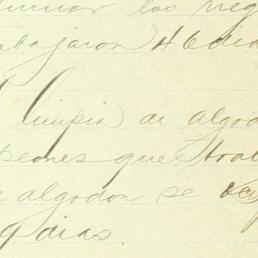 los neg
bajaron 46 dia
limpia de algod
peones que trab
algodon se
9 dias.